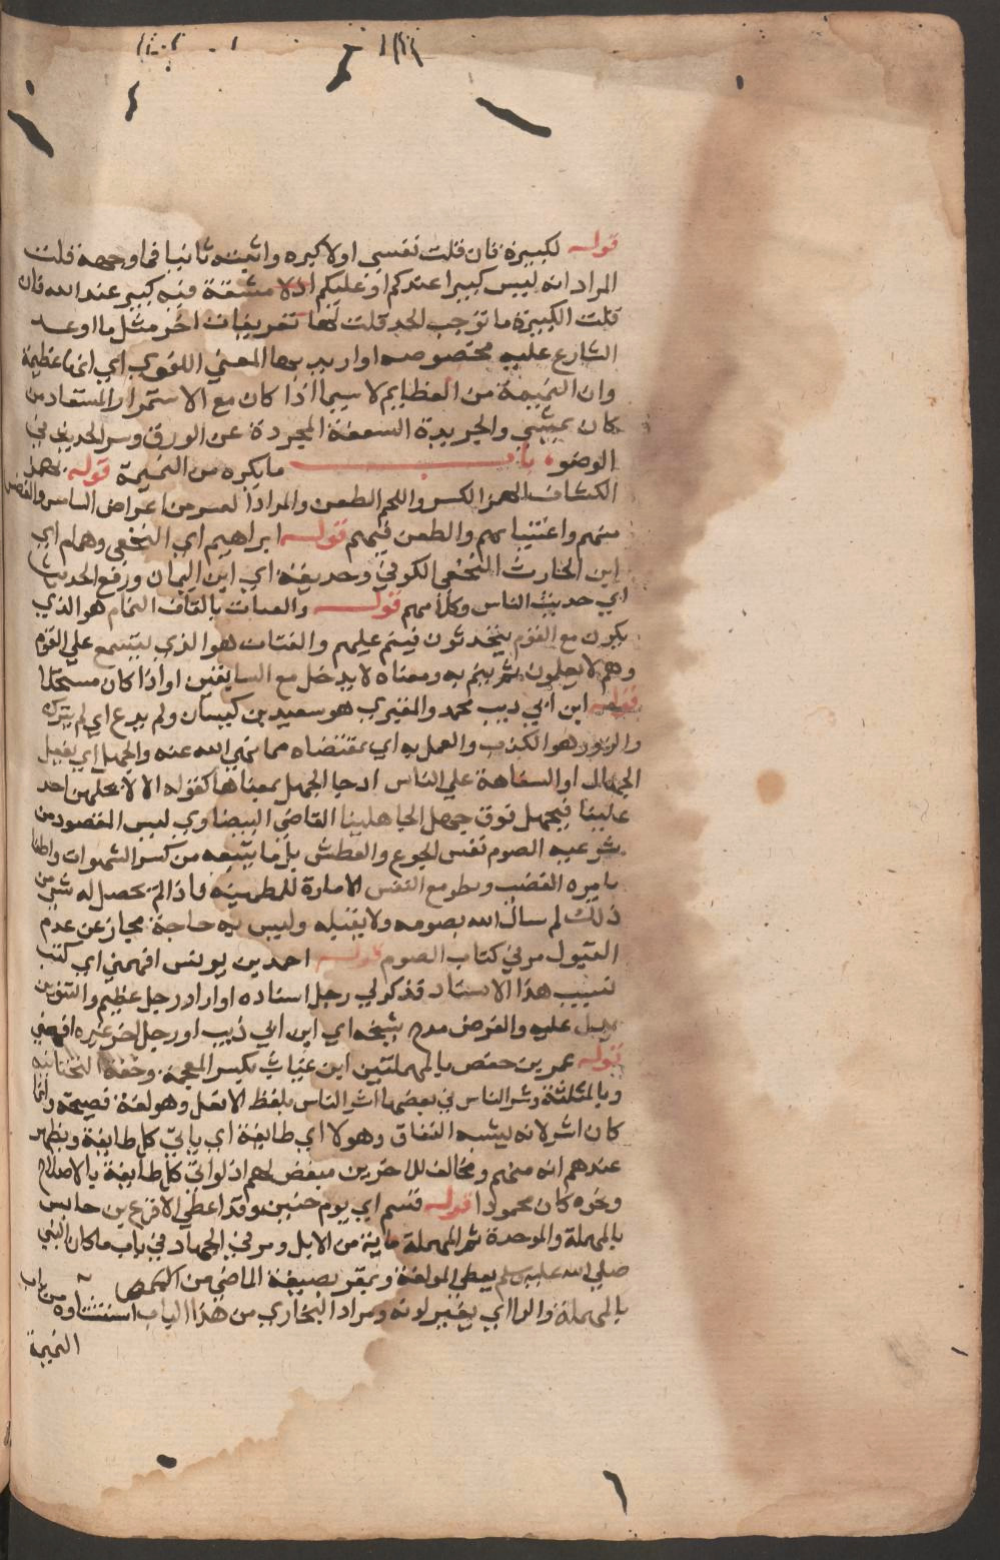 قوله لكبيرة فان قلت نفسي اولا كبره واثبته ثانيا فما وجهه قلت
المراد انه ليس كبيرا عندكم او عليكم اذ لا مشقة فيه كبير عند الله فان
قلت الكبيرة ما توجب الحد قلت لها تعريفات اخر مثل ما اوعد
الشارع عليه مخصوصه او اريد بها المعني اللغوي اي انها عظيمة
وان النميمة من العظايم لا سيما اذا كان مع الاستمرار المستفاد من
كان يمشي والجريدة السعفة المجردة عن الورق ومر الحديث في
الوضو باب ما يكره من النميمة قوله يهمز
الكشاف الهمز الكسر واللمز الطعن والمراد الكسر من اعراض الناس والغض
منهم واغتيابهم والطعن فيهم قوله ابراهيم اي النخعي وهمام اي
ابن الحارث النخعي الكوفي وحذيفة اي ابن اليمان ورفع الحديث
اي حديث الناس وكلامهم قوله والقتات بالقاف النمام هو الذي
يكون مع القوم يتحدثون فينم عليهم والقتات هو الذي يستمع علي القوم
وهم لا يعلمون ثم ينم به ومعناه لا يدخل مع السابقين او اذا كان مستحلا
قوله ابن ابي ذيب محمد والمقبري هو سعيد بن كيسان ولم يدع اي لم يترك
والزور هو الكذب والعمل به اي بمقتضاه مما نهي الله عنه والجهل اي بفعل
الجهال او السفاهة علي الناس اذ جا الجهل بمعناها كقوله الا لا يجهلن احد
علينا فنجهل فوق جهل الجاهلينا القاضي البيضاوي ليس المقصود من
شرعيه الصوم نفس الجوع والعطش بل ما يتبعه من كسر الشهوات واطفا
نايره الغضب وتطويع النفس الامارة للمطمينه فاذا لم يحصل له شي من
ذلك لم يبال الله بصومه ولا يقبله وليس لله حاجة مجاز عن عدم
القبول مر في كتاب الصوم قوله احمد بن يونس افهمني اي كنت
نسيت هذا الاسناد فذكر لي رجل اسناده او اراد رجل عظيم والتنوين
يدل عليه والغرض مدح شيخه اي ابن ابي ذيب او رجل اخر غيره افهمني
قوله عمر بن حفص بالمهملتين ابن غياث بكسر المعجمة وخفة التحتانيه
وبالمثلثة وشر الناس في بعضها اشر الناس بلفظ الافعل وهو لغة فصيحة وانما
كان اشر لانه يشبه النفاق وهولا اي طايفة اي ياتي كل طايفة ويظهر
عندهم انه منهم ومخالف للاخرين مبغض لهم اذ لو اتي كل طايفة بالاصلاح
ونحوه كان محمودا قوله قسم اي يوم حنين وقد اعطي الاقرع بن حابس
بالمهملة والموحدة ثم المهملة ماية من الابل ومر في الجهاد في باب ما كان النبي
صلي الله عليه وسلم يعطي المولفة وتمعر بصيغة الماضي من التمعر
بالمهملة والرا اي يغير لونه ومراد البخاري من هذا الباب استثناوه من باب
النميمة